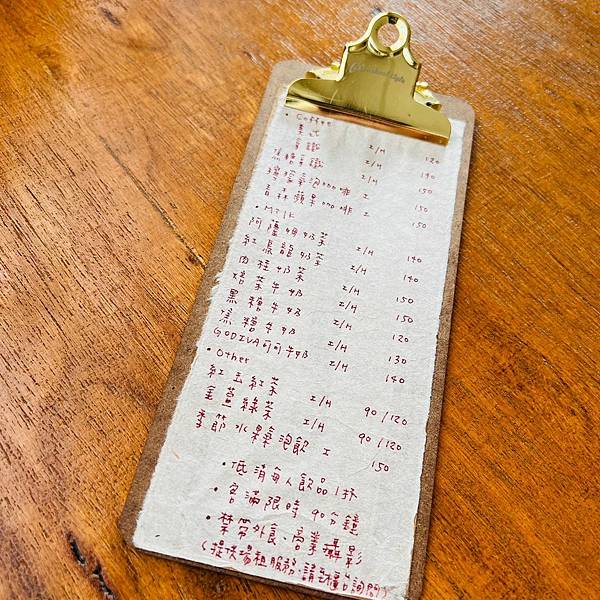 • Coffee
美式 I/H 120
拿鐵 I/H 140
焦糖拿鐵 I/H 150
氣泡咖啡 I 150
青森蘋果咖啡 I 150
• Milk
阿薩姆奶茶 I/H 140
紅烏龍奶茶 I/H 140
肉桂奶茶 I/H 150
焙茶牛奶 I/H 150
黑糖牛奶 I/H 120
焦糖牛奶 I/H 130
GODIVA可可牛奶 I/H 140
• Other
紅玉紅茶 I/H 90/120
薑綠茶 I/H 90/120
季節水果氣泡飲 I 150
• 低消每人飲品1杯
• 客滿限時90分鐘
• 禁帶外食、商業攝影
(提供場租服務,請至櫃台詢問)